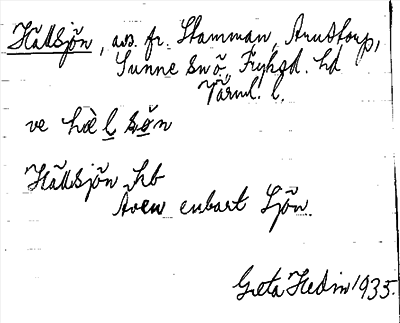 Hällsjön, avs. fr. Stamman, Arnstorp,
Sunne sn ö., Fryksd. hd
Värml. l.
ve hæ̀l sön
Hällsjön hb
Även enbart Sjön.
Greta Hedin 1935.